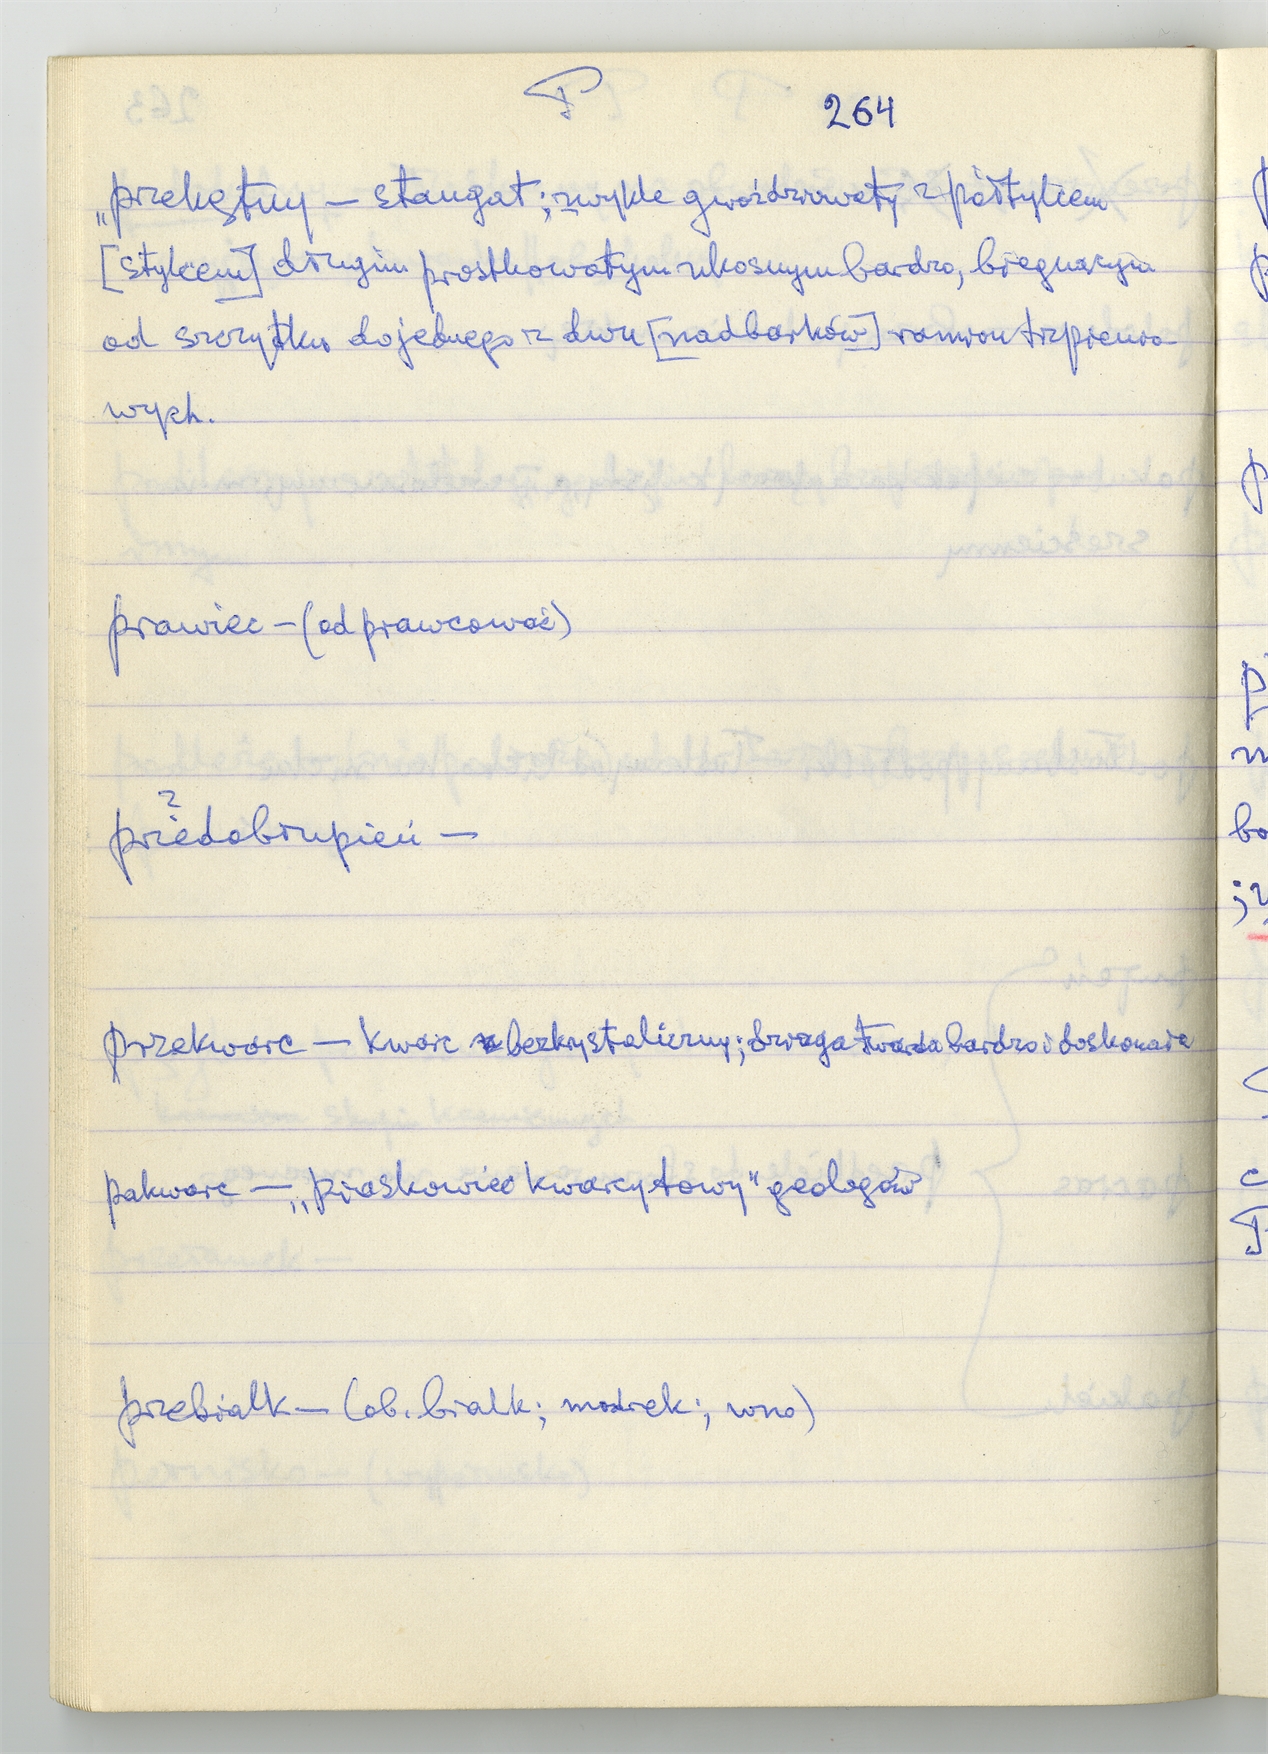 P 264
„przekątny – stangat; zwykle gwoździowaty z półtylcem
[stylcem] długim prostkowatym ukosnym bardzo, biegnącym
od szczytku do jednego z dwu [nadbarków] ramion trzpienio
wych.
prawiec – (od prawcować)
?
przedobłupień –
przekwarc – kwarc bezkrystaliczny; twarda bardzo i doskonała
pakwarc – „piaskowiec kwarcytowy" geologów
przebiałk – (ob. białk; modrek; wno)